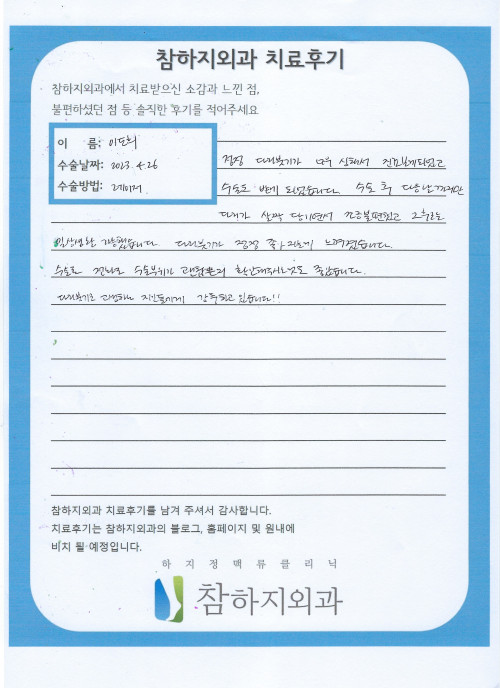 참하지외과 치료후기
참하지외과에서 치료받으신 소감과 느낀 점,
불편하셨던 점 등 솔직한 후기를 적어주세요
이 름:
수술날짜: 2023. 4. 26
수술방법: 레이저
점점 다리붓기가 너무 심해서 진료받게되었고
수술도 받게 되었습니다. 수술 후 다음날까지만
다리가 살짝 당기면서 조금불편했고 그후로는
일상생활 가능했습니다. 다리붓기가 점점 좋아지는게 느껴졌습니다.
수술후 관리도 수술부위가 괜찮은지 확인해주시는것도 좋았습니다.
다리붓기로 고생하는 지인들에게 강추하고 있습니다!!
참하지외과 치료후기를 남겨 주셔서 감사합니다.
치료후기는 참하지외과의 블로그, 홈페이지 및 원내에
비치 될 예정입니다.
하지정맥류클리닉
참하지외과